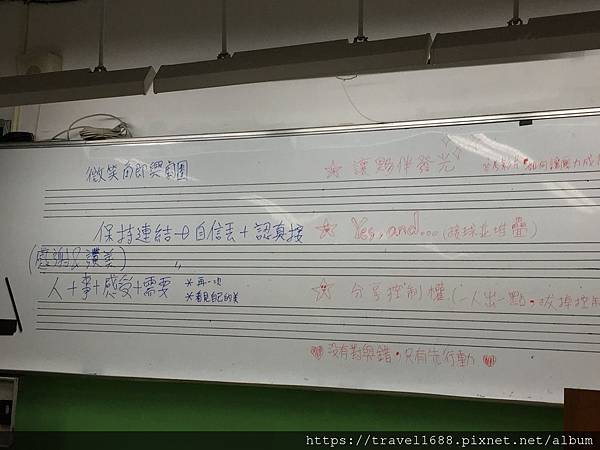 微笑角即興劇團
保持連結→自信丟+認真接
(感謝&讚美)
人+事+感受+需要
*再一次
*看見自己的美
☆ 讓夥伴發光
如何讓壓力成
☆ Yes, and...(接球並堆疊)
☆ 分享控制權(一人出一點,拔掉控制
没有對與錯,只有先行動
https://travel1688.pixnet.net/album